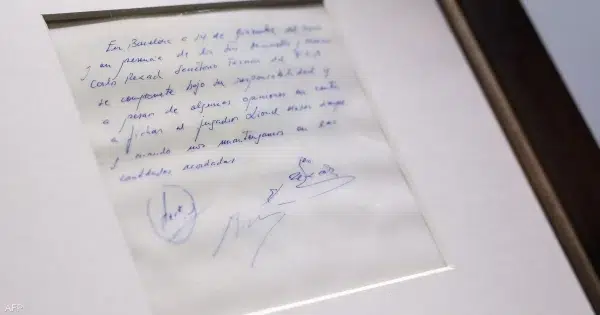 En Barcelona a 14 de Diciembre del 2000
y en presencia de los Srs Minguella y Horacio
Carlos Rexach Secretario Técnico del F.C.B
se compromete bajo su responsabilidad y
a pesar de algunas opiniones en contra
a fichar al jugador Lionel Messi siempre
y cuando nos mantengamos en las
cantidades acordadas
AFP